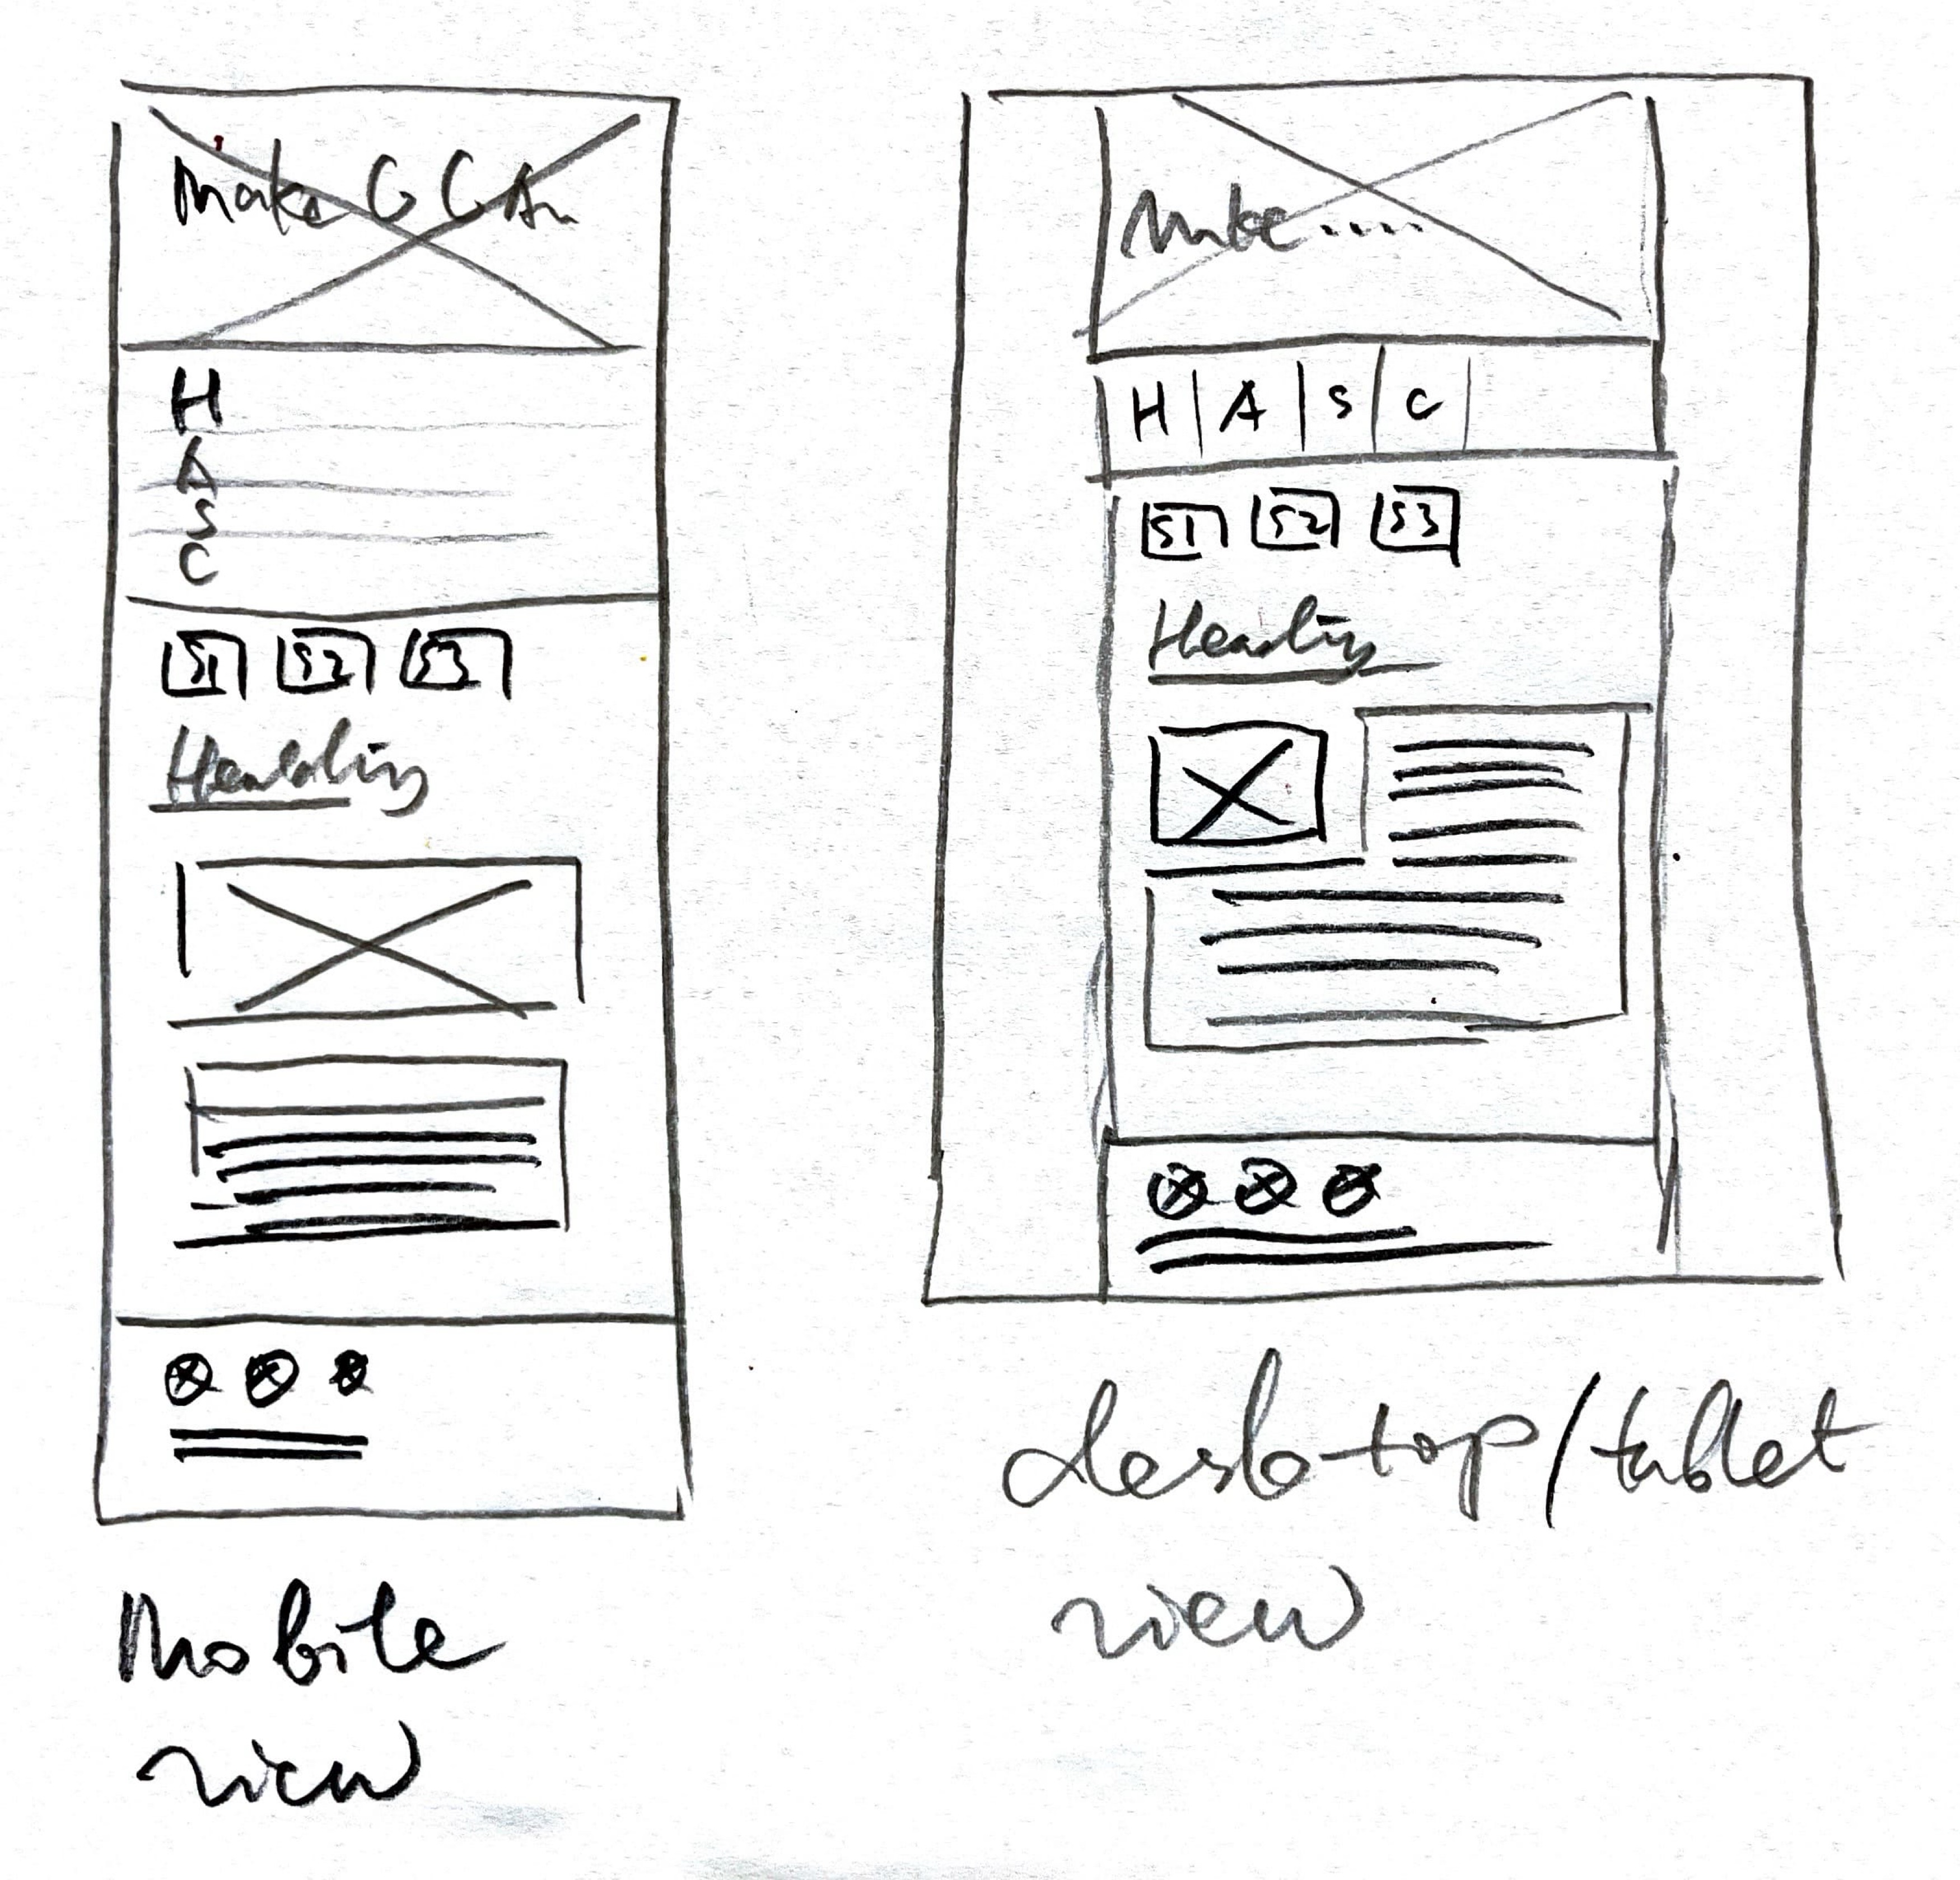 Make G C An
H
A
S
C
S1 S2 S3
Heading
Mobile
view
Make....
H | A | S | C |
S1 S2 S3
Heading
desktop/tablet
view